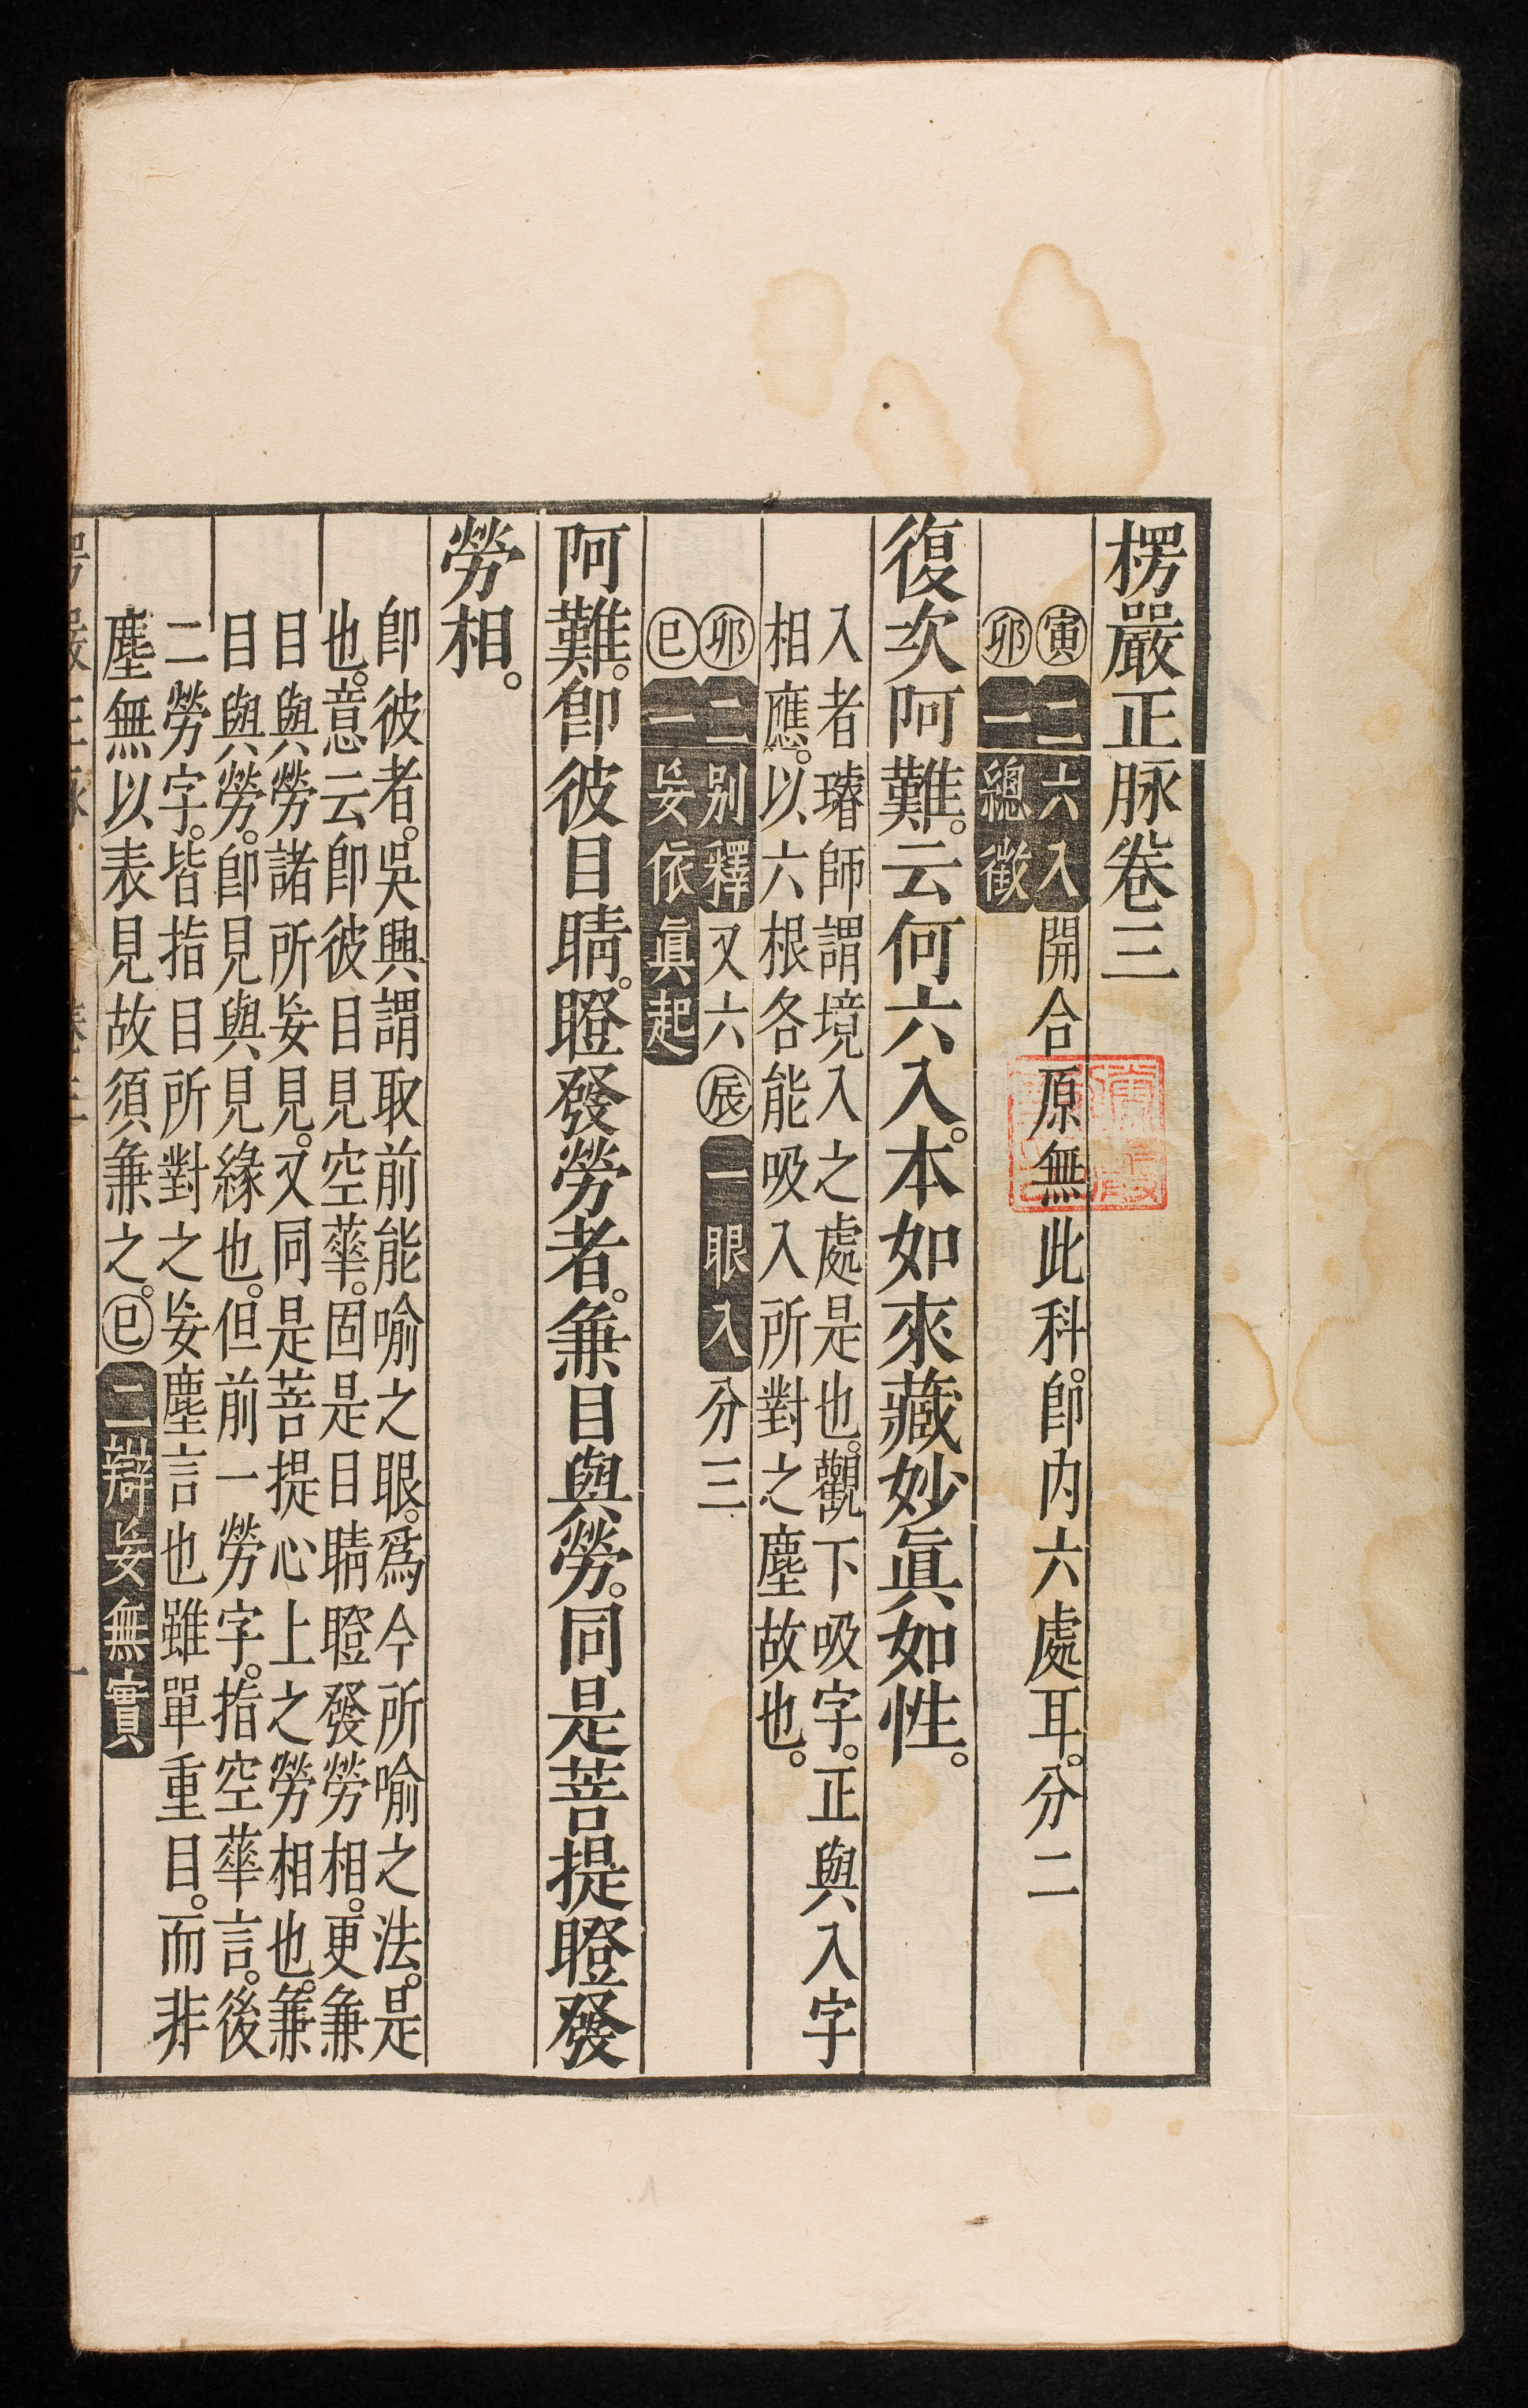 楞嚴正脉卷三
寅二六入開合原無此科。卽内六處耳。分二
卯一總徵
復次阿難。云何六入。本如來藏妙眞如性。
入者璿師謂境入之處是也。觀下吸字。正與入字
相應。以六根各能吸入所對之塵故也。
卯二別釋又六辰一眼入分三
巳一妄依眞起
阿難。卽彼目睛。瞪發勞者。兼目與勞。同是菩提瞪發
勞相。
卽彼者。吳興謂取前能喻之眼。爲今所喻之法。是
也。意云卽彼目見空華。固是目睛瞪發勞相。更兼
目與勞諸所妄見。又同是菩提心上之勞相也。兼
目與勞。卽見與見緣也。但前一勞字。指空華言。後
二勞字。皆指目所對之妄塵言也雖單重目。而非
塵無以表見故須兼之。巳二辯妄無實